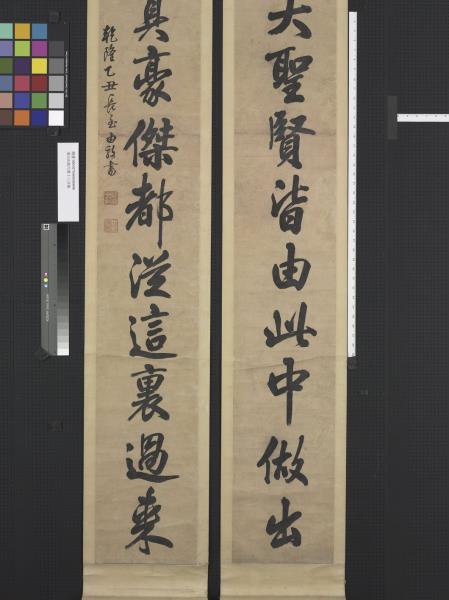 大聖賢皆由此中做出
真豪傑都從這裏過來
乾隆乙丑長至由敦書